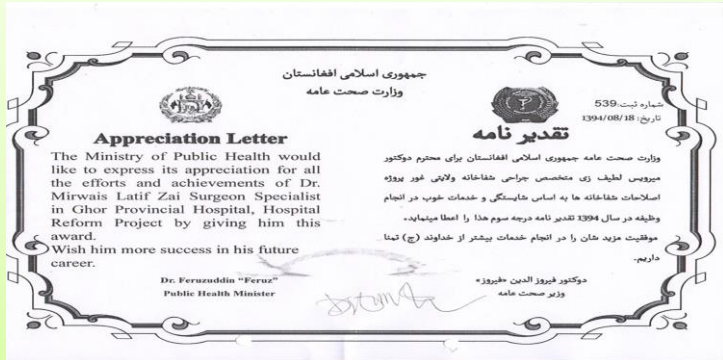 جمهوری اسلامی افغانستان
وزارت صحت عامه
شماره ثبت:539
تاریخ: 1394/08/18
Appreciation Letter
The Ministry of Public Health would
like to express its appreciation for all
the efforts and achievements of Dr.
Mirwais Latif Zai Surgeon Specialist
in Ghor Provincial Hospital, Hospital
Reform Project by giving him this
award.
Wish him more success in his future
career.
Dr. Feruzuddin “Feruz”
Public Health Minister
تقدیر نامه
وزارت صحت عامه جمهوری اسلامی افغانستان برای محترم دوکتور
میرویس لطیف زی متخصص جراحی شفاخانه ولایتی غور پروژه
اصلاحات شفاخانه ها به اساس شایستگی و خدمات خوب در انجام
وظیفه در سال 1394 تقدیر نامه درجه سوم هذا را اعطا مینماید.
موفقیت مزید شان را در انجام خدمات بیشتر از خداوند (ج) تمنا
داریم.
دوکتور فیروز الدین «فیروز»
وزیر صحت عامه